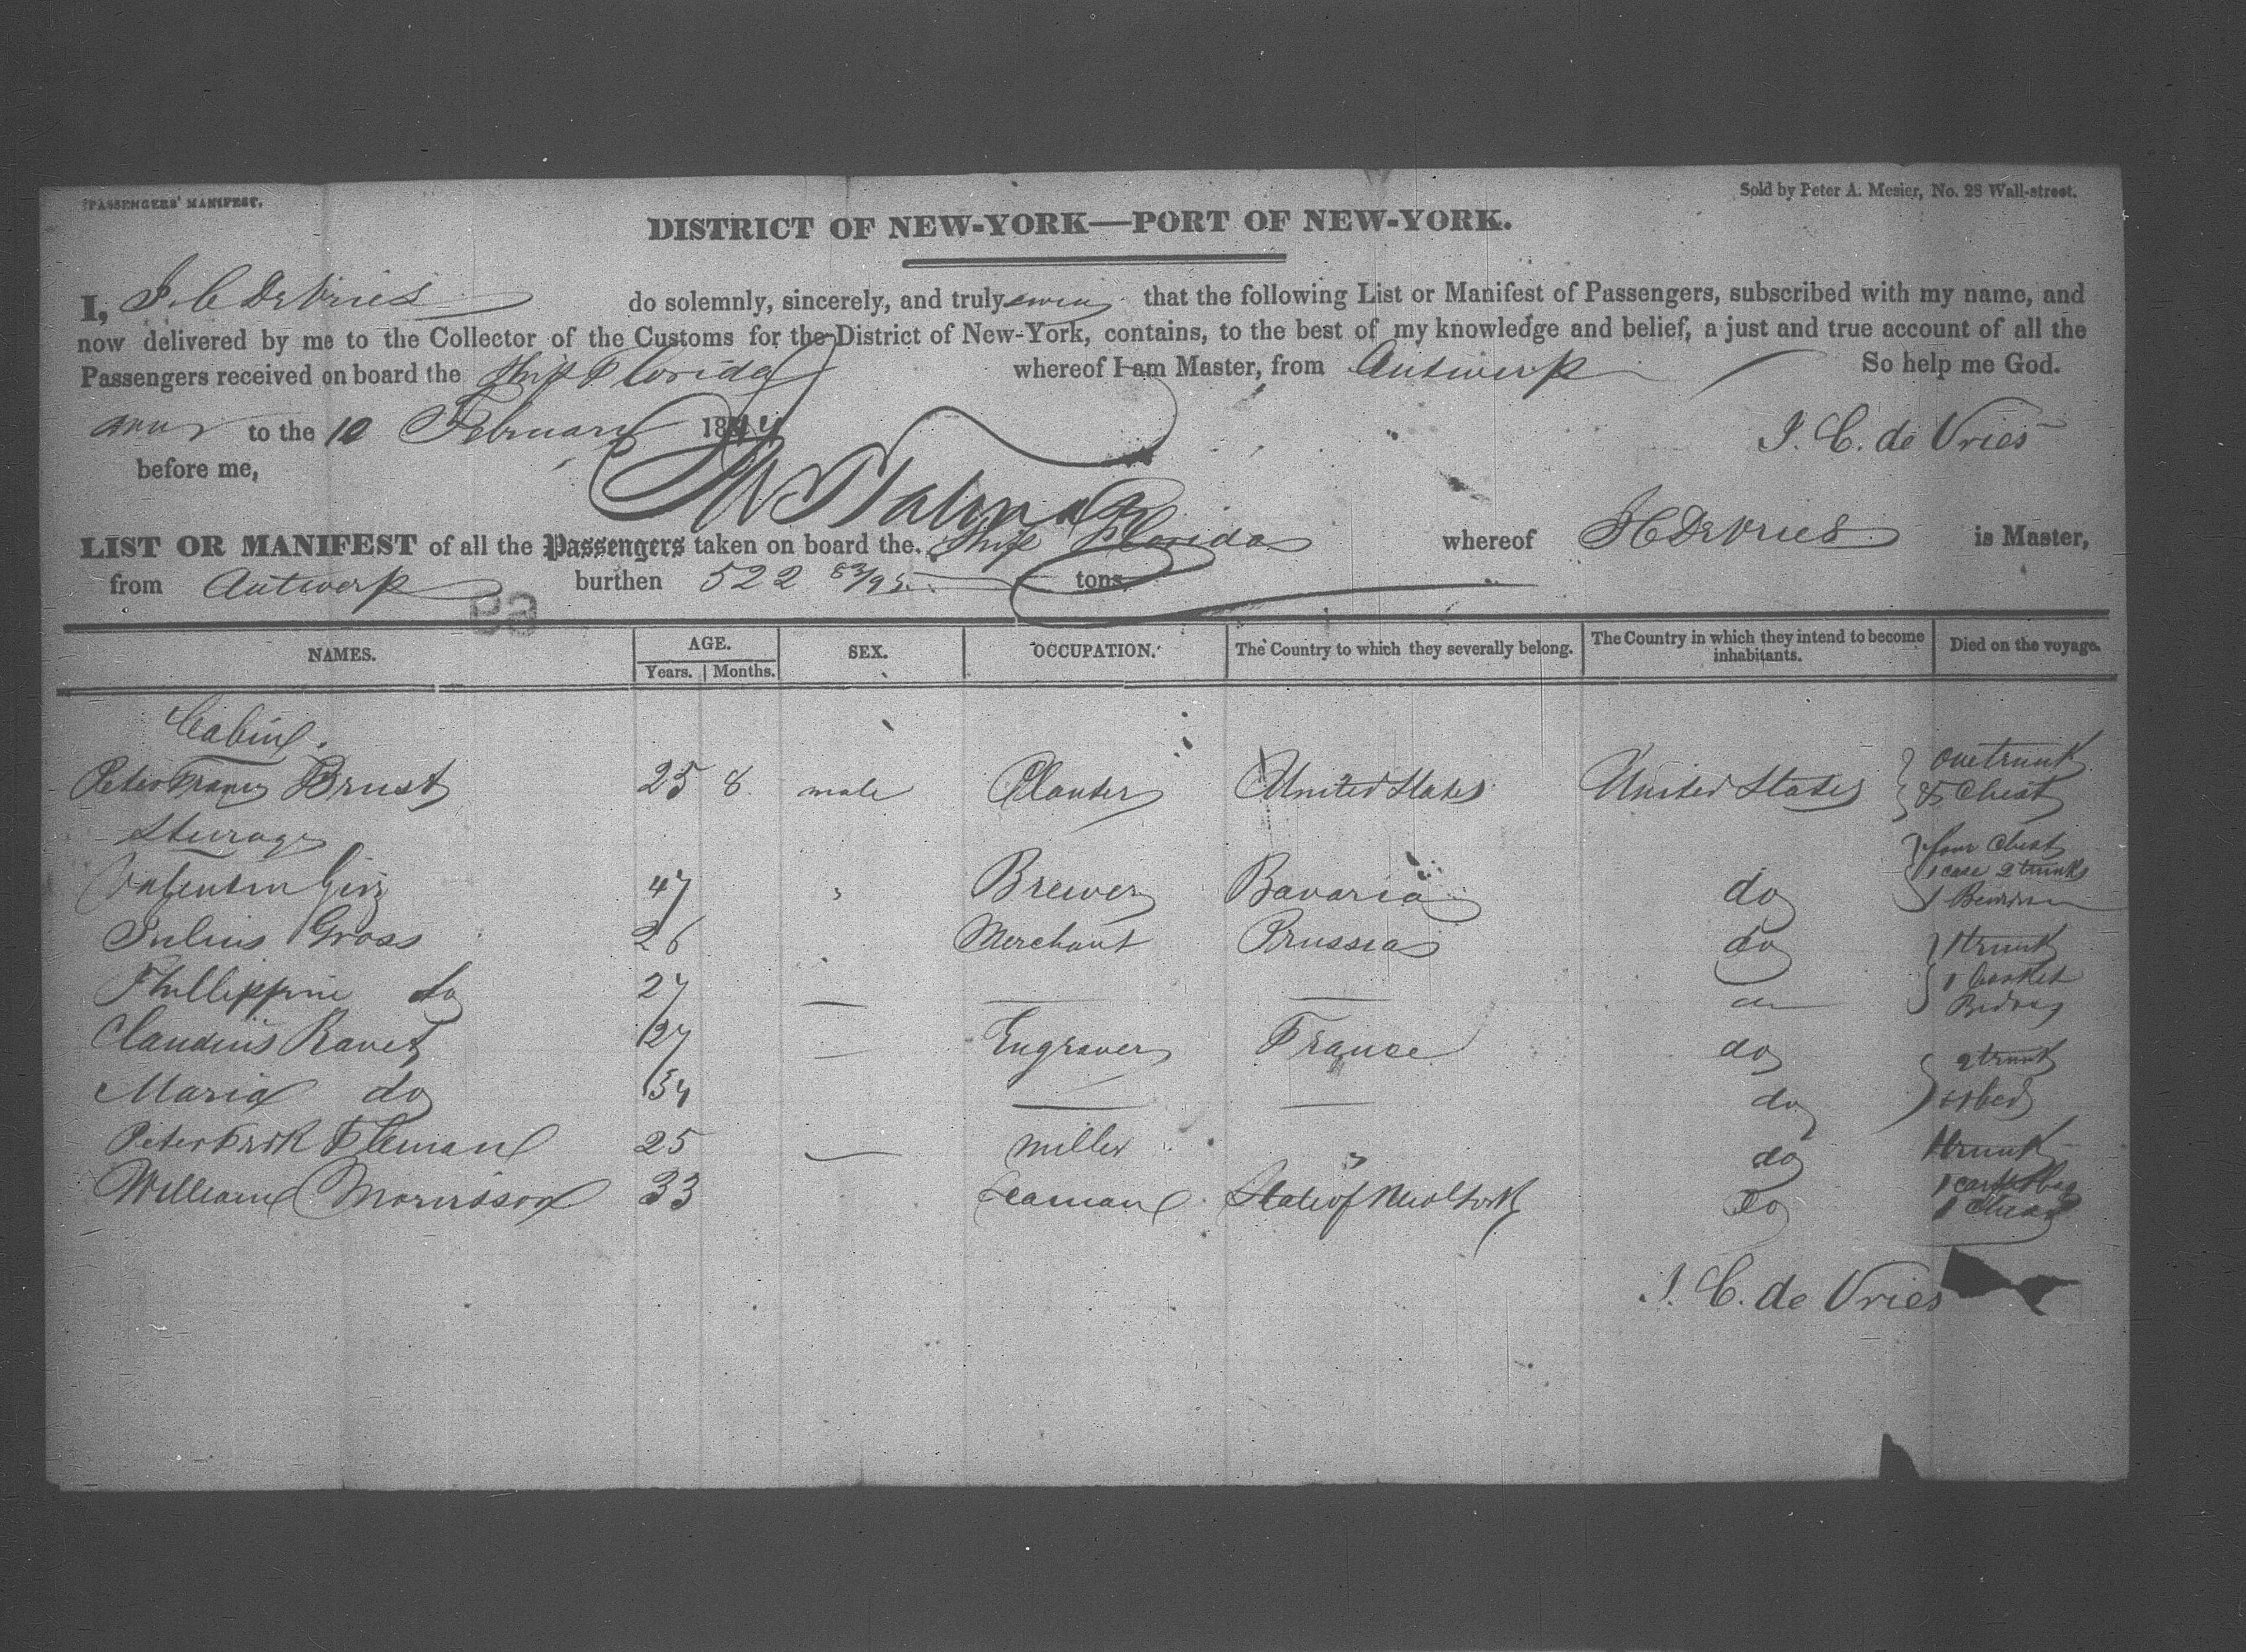 PASSENGERS' MANIFEST.
Sold by Peter A. Mesier, No. 28 Wall-street.
DISTRICT OF NEW-YORK—PORT OF NEW-YORK.
I, J. C DeVries do solemnly, sincerely, and truly swear that the following List or Manifest of Passengers, subscribed with my name, and
now delivered by me to the Collector of the Customs for the District of New-York, contains, to the best of my knowledge and belief, a just and true account of all the
Passengers received on board the Ship Florida whereof I am Master, from Antwerp So help me God.
to the 10 February 1844
J. C. de Vries
before me,
LIST OR MANIFEST of all the Passengers taken on board the Ship Florida whereof J C DeVries is Master,
from Antwerp burthen 522 83/95 tons
NAMES. AGE. SEX. OCCUPATION. The Country to which they severally belong. The Country in which they intend to become inhabitants. Died on the voyage.
Years. Months.
Cabin.
Peter Franz Brust 25 8 male Planter United States United States one trunk & Chest
Steerage
Valentin 47 " Brewer Bavaria do four Chest 1 case 2 trunks 1
Julius Gross 26 Merchant Prussia do 1 trunk
Phillippine do 27 — — — do 1 basket Beding
Claudius Ravet 27 — Engraver France do 2 trunk
Maria do 54 — — do bed
Peter Fleman 25 — miller " do 1 trunk
William Morrisson 33 Seaman State of New York do 1 1 Chest
J. C. de Vries